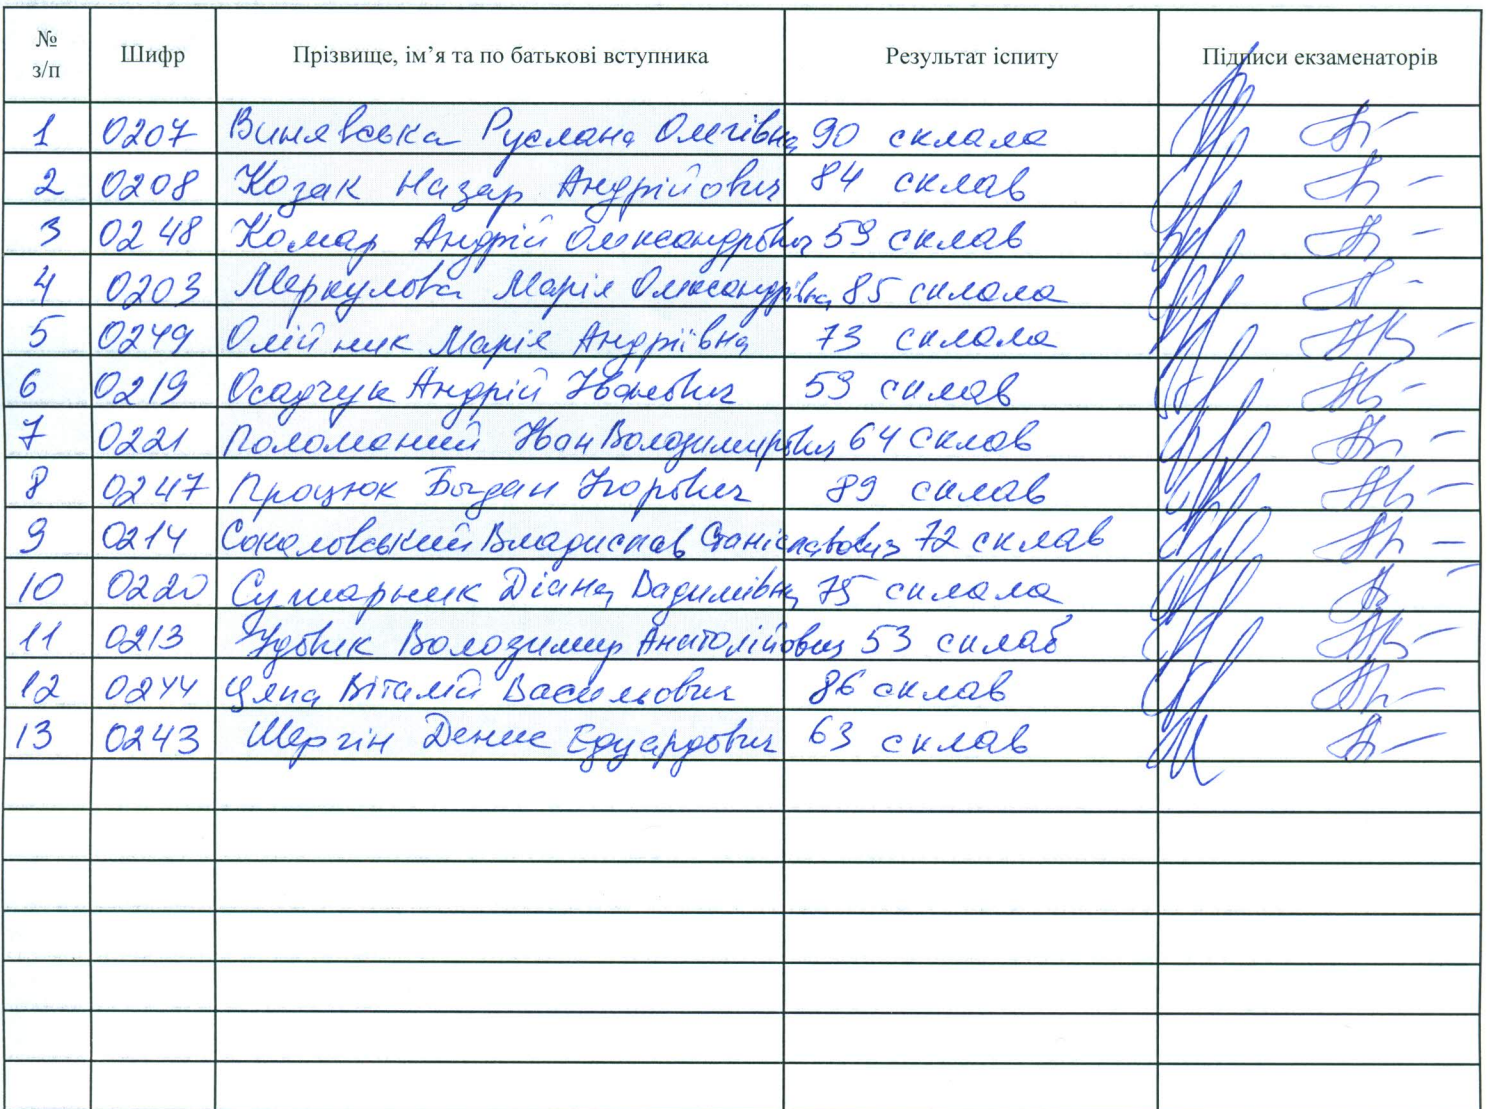 № з/п Шифр Прізвище, ім’я та по батькові вступника Результат іспиту Підписи екзаменаторів
1 0207 Винявська Руслана Олегівна 90 склала
2 0208 Козак Назар Андрійович 84 склав
3 0248 Комар Андрій Олександрович 59 склав
4 0203 Меркулова Марія Олександрівна 85 склала
5 0249 Олійник Марія Андріївна 73 склала
6 0219 Осадчук Андрій Іванович 59 склав
7 0221 Поломаний Іван Володимирович 64 склав
8 0247 Процюк Богдан Ігорович 89 склав
9 0214 Соколовський Владислав Станіславович 72 склав
10 0220 Діана Вадимівна 75 склала
11 0213 Удовик Володимир Анатолійович 53 склав
12 0244 Віталій Васильович 86 склав
13 0243 Шергін Денис Едуардович 63 склав